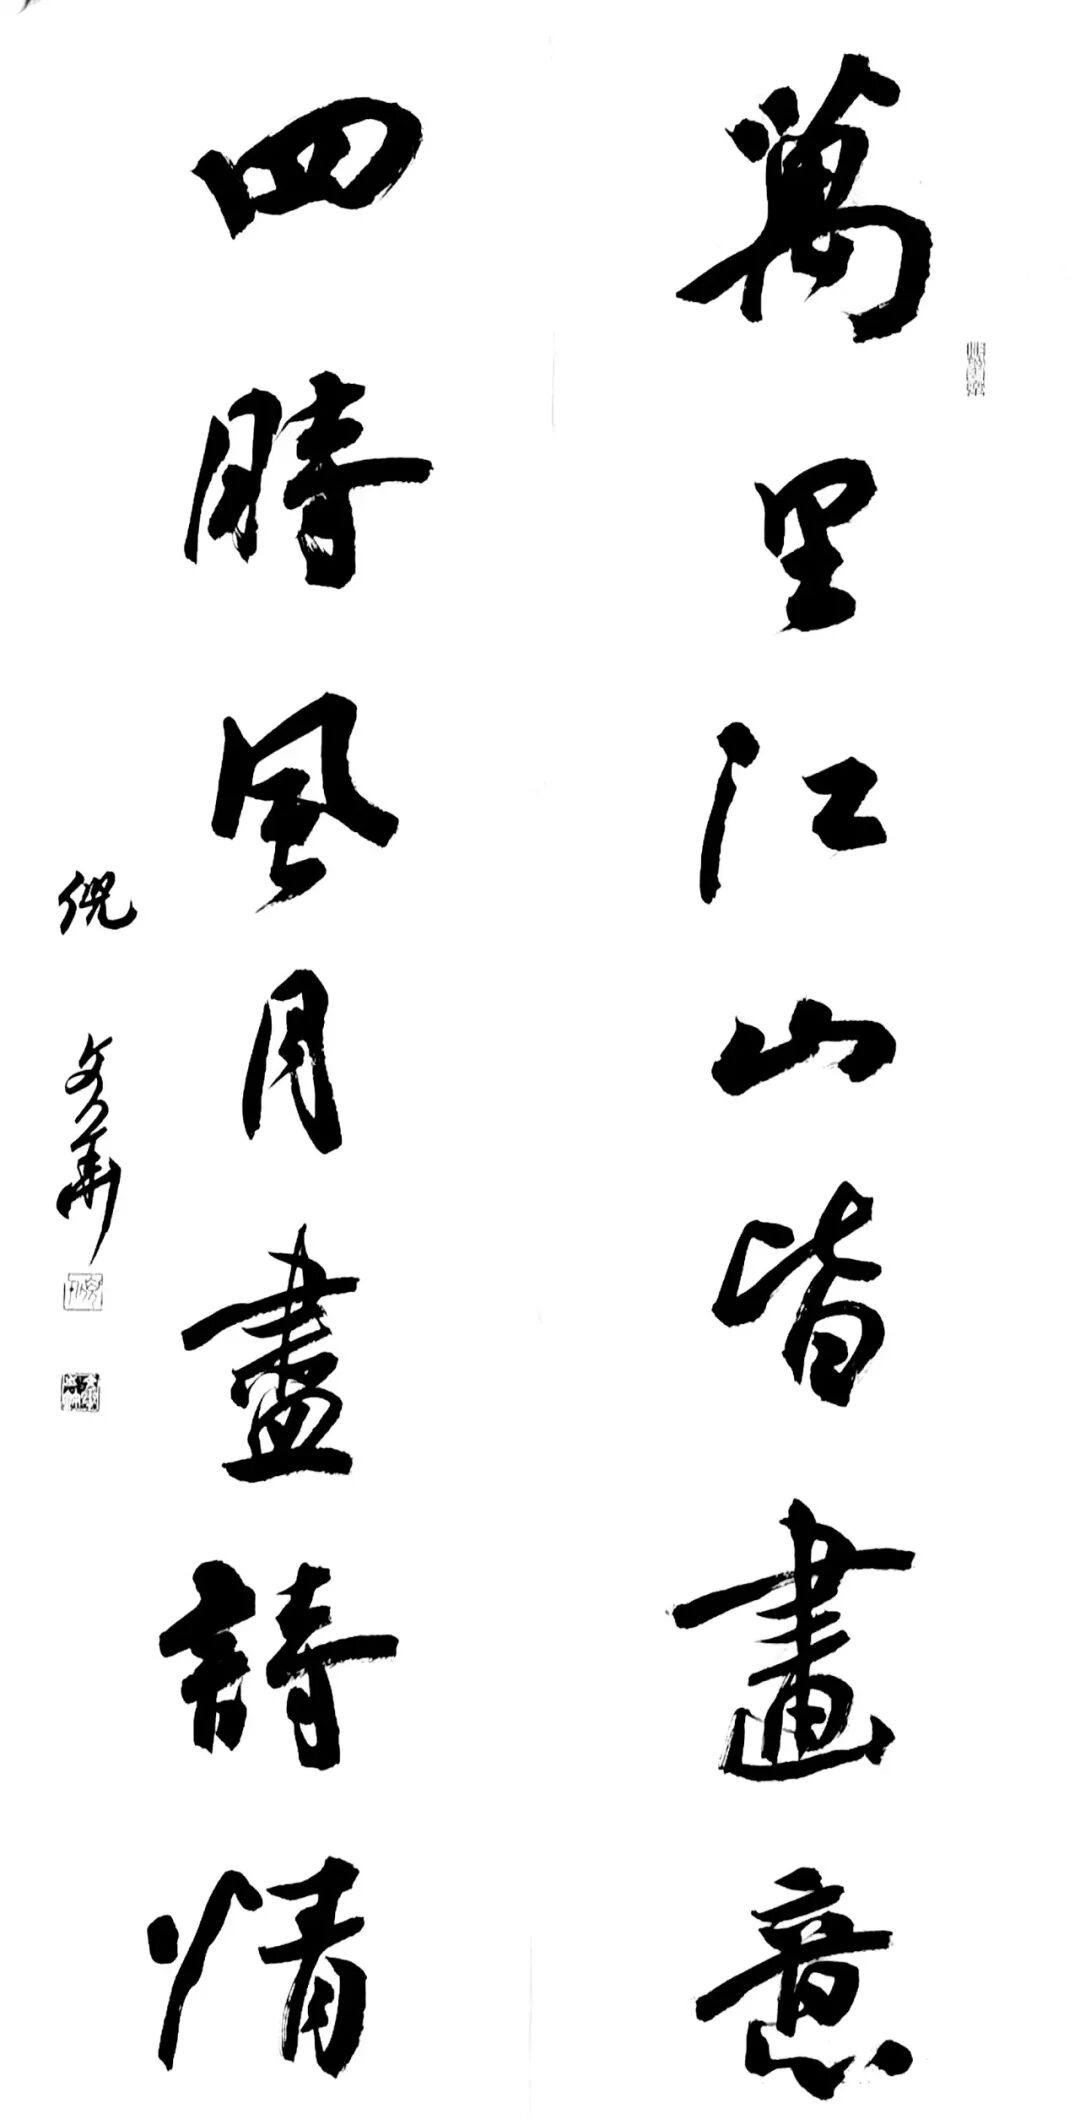 萬里江山皆畫意
四時風月盡詩情
倪文華